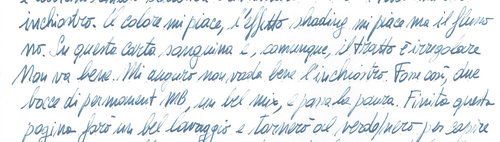 inchiostro. Il colore mi piace, l'effetto shading mi piace ma il flusso
no. In questa carta sanguina e, comunque, il tratto è irregolare
Non va bene. Mi auguro non vada bene l'inchiostro. Forse così, due
bocce di permanent MB, un bel mix, e passa la paura. Finita questa
pagina farò un bel lavaggio e tornerò al verde/nero per capire